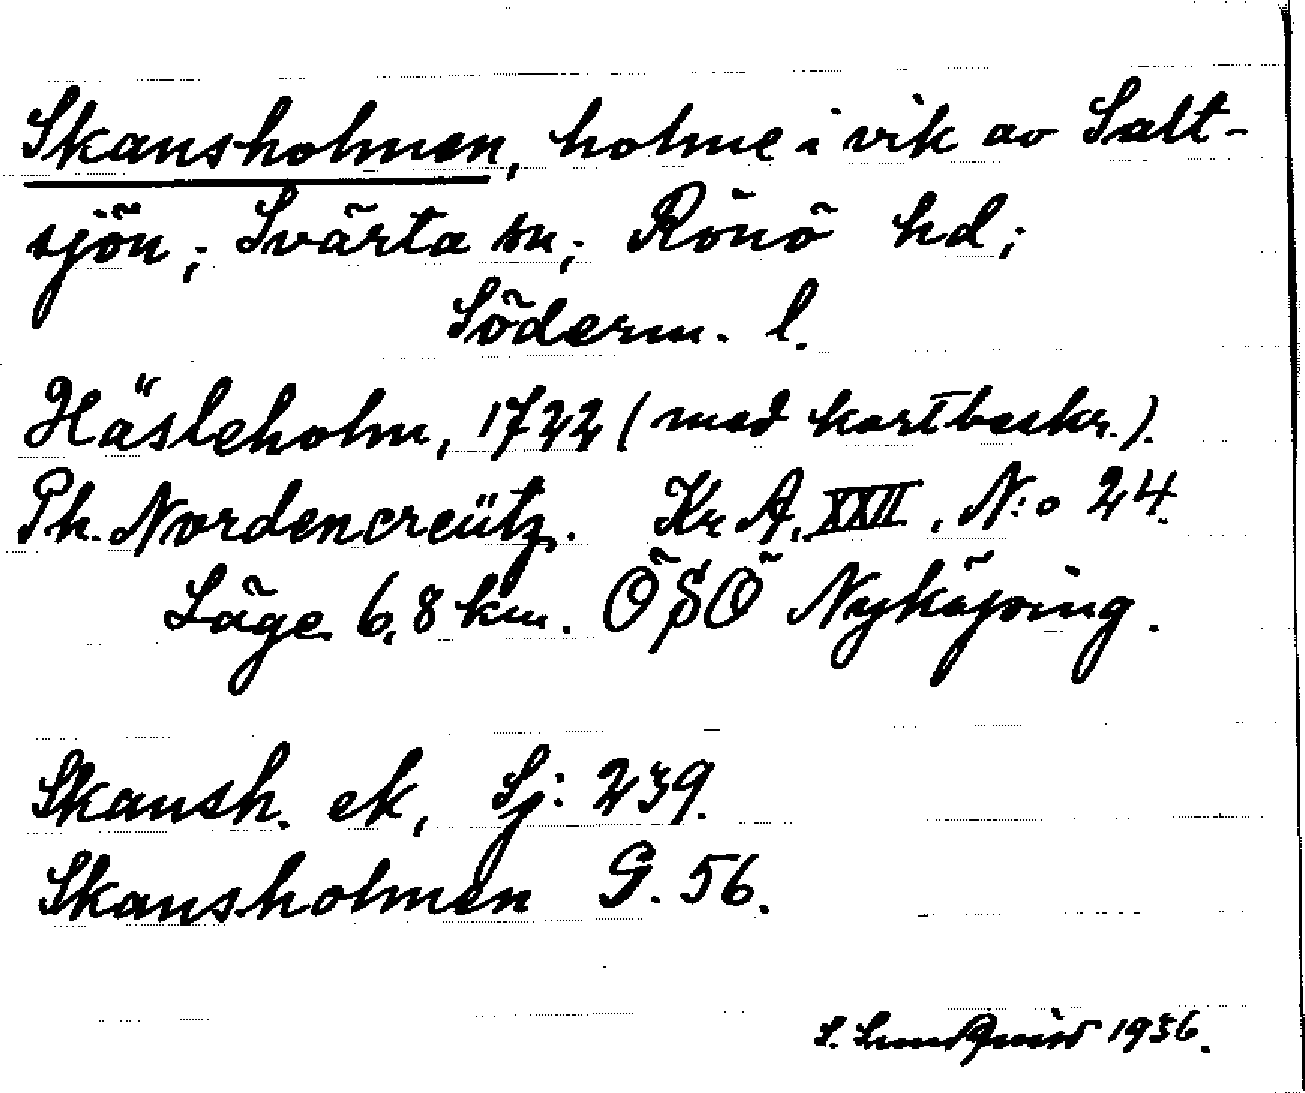 Skansholmen, holme i vik av Salt-
sjön; Svärta sn; Rönö hd;
Söderm. l.
Hästeholm, 1722 (med kartbeskr.).
Ph. Nordencreütz. Kr. A. XXII, N:o 24.
Läge 6,8 km. ÖSÖ Nyköping.
Skansh. ek, Sj: 239.
Skansholmen G. 56.
S. Lundquist 1936.